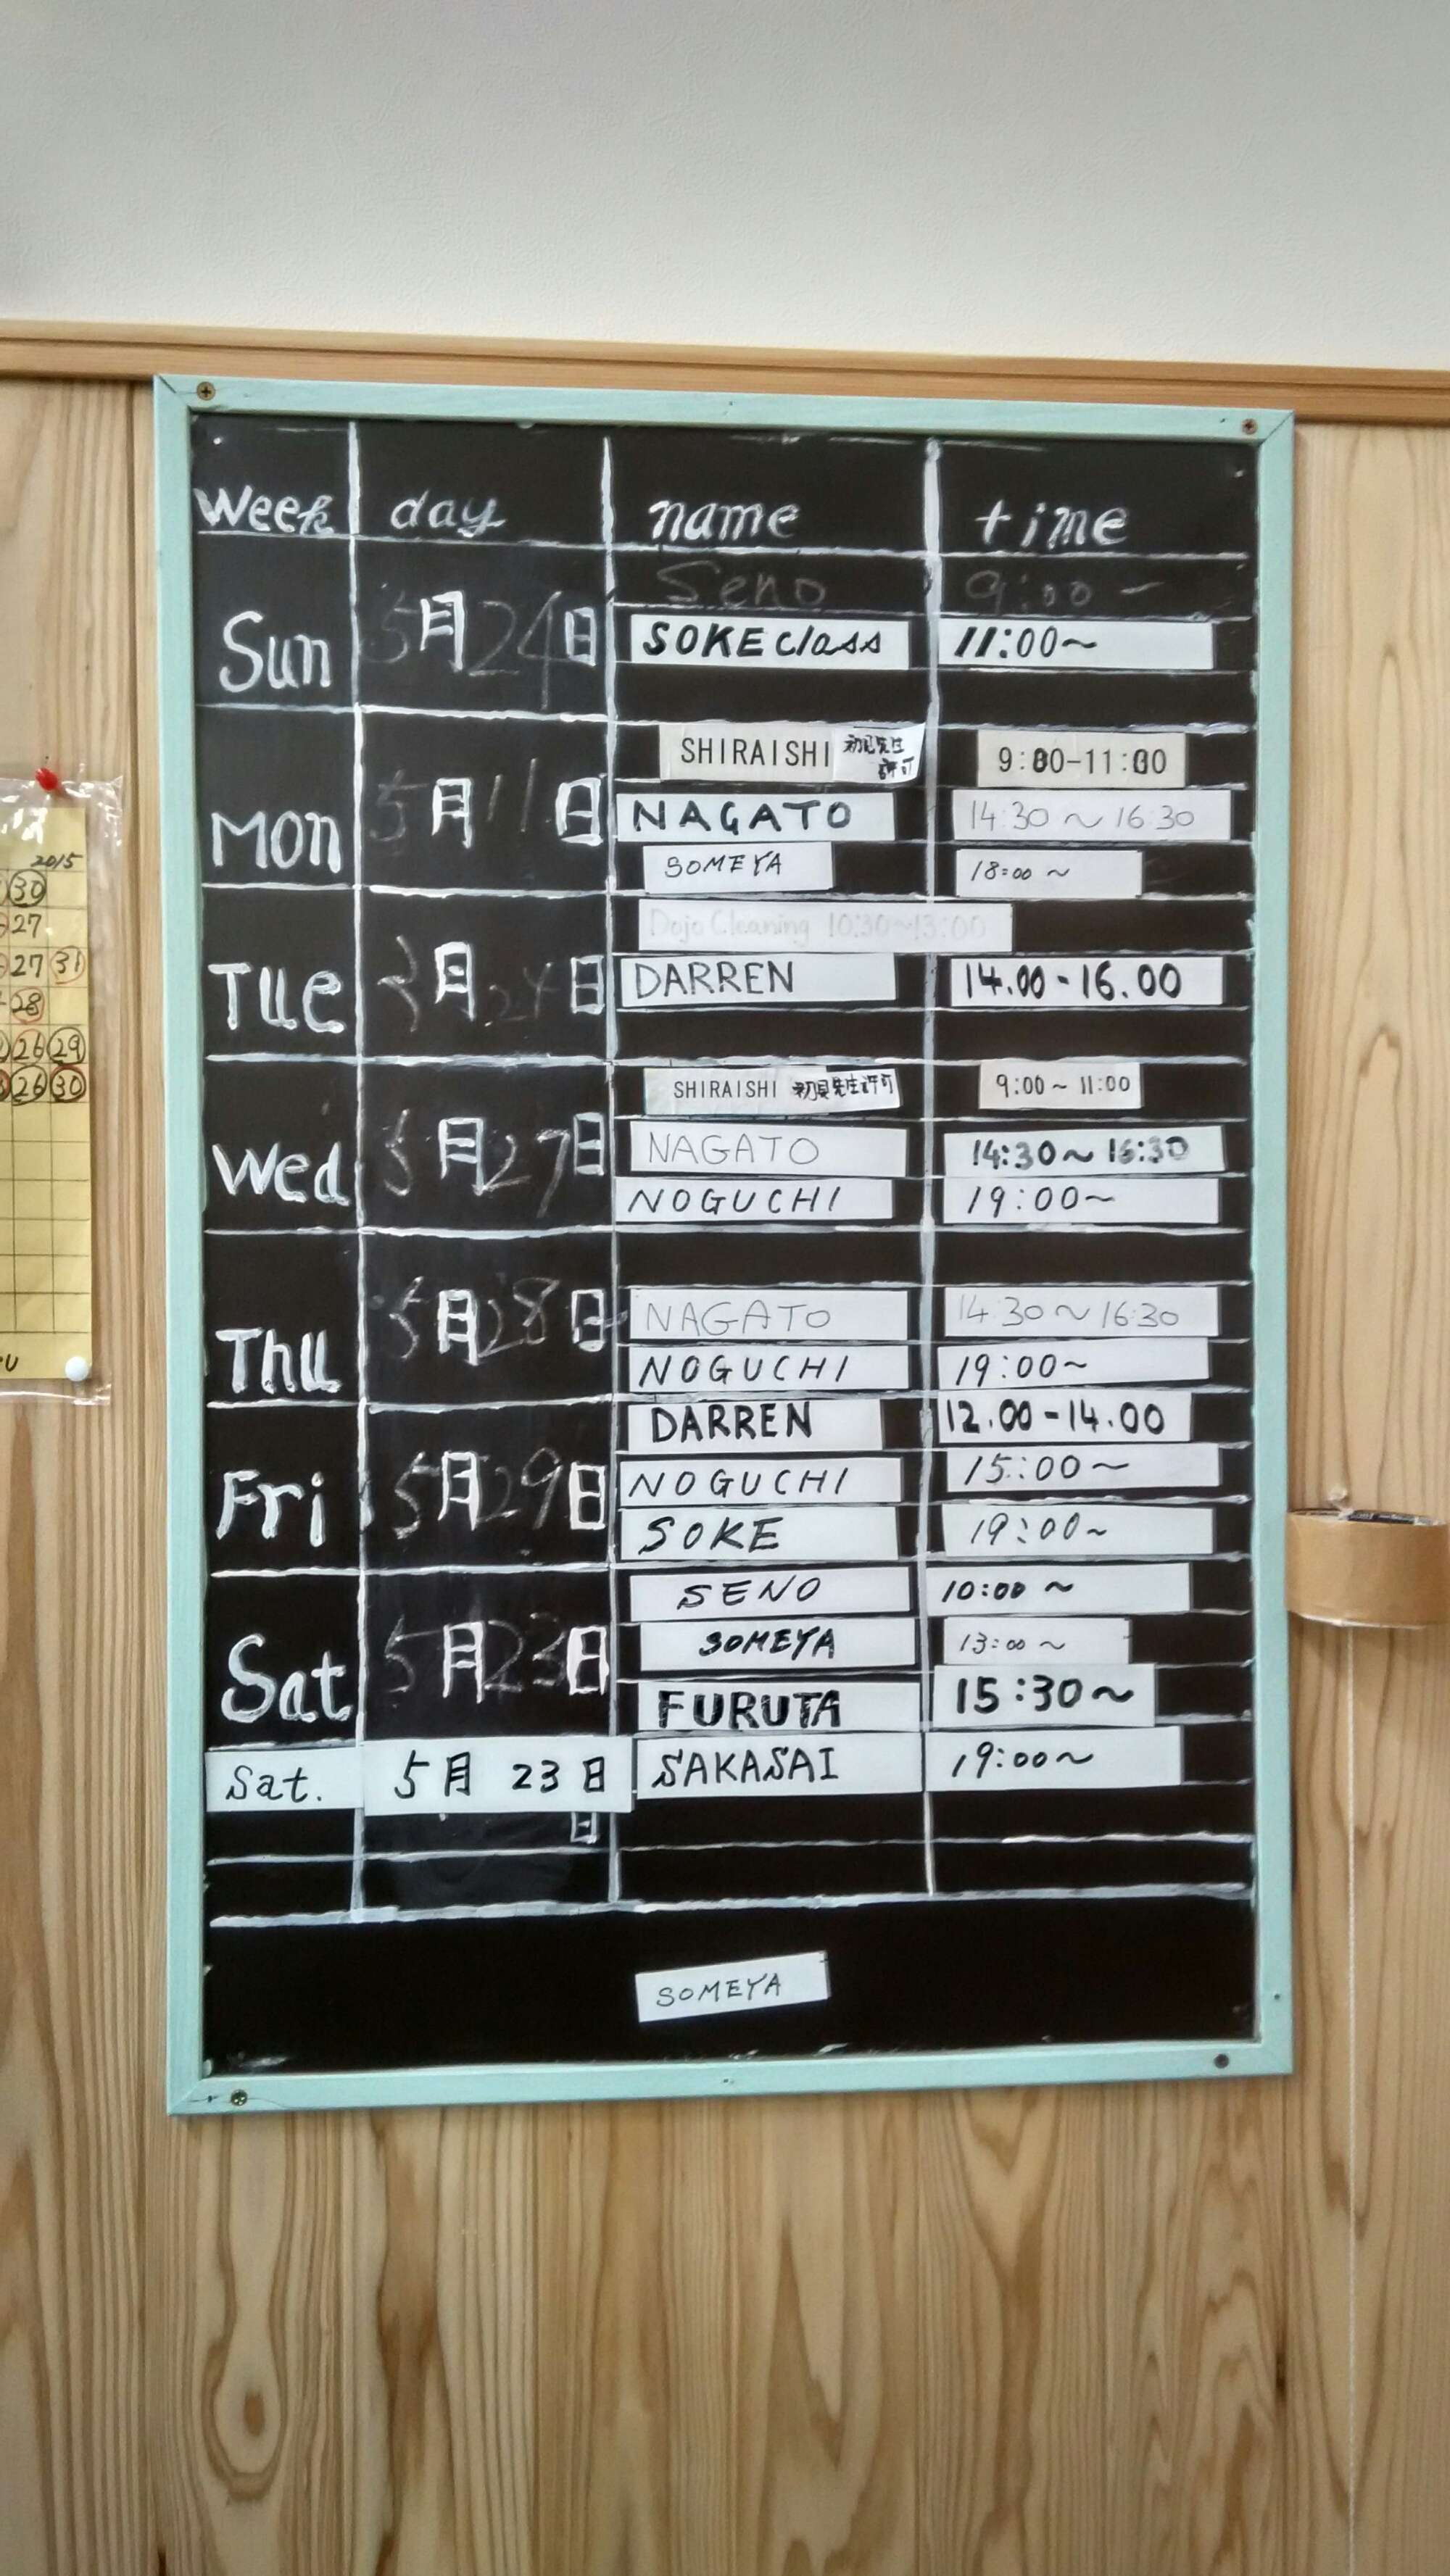 Week day name time
Seno 9:00 -
Sun 5月24日 SOKE class 11:00~
SHIRAISHI 初見先生許可 9:00-11:00
Mon 5月11日 NAGATO 14:30~16:30
SOMEYA 18:00~
Dojo Cleaning 10:30~13:00
Tue 月2日 DARREN 14.00-16.00
SHIRAISHI 初見先生許可 9:00~11:00
Wed 5月27日 NAGATO 14:30~16:30
NOGUCHI 19:00~
Thu 5月28日 NAGATO 14:30~16:30
NOGUCHI 19:00~
DARREN 12.00-14.00
Fri 5月29日 NOGUCHI 15:00~
SOKE 19:00~
SENO 10:00~
Sat 5月23日 SOMEYA 13:00~
FURUTA 15:30~
Sat. 5月23日 SAKASAI 19:00~
日
SOMEYA
2015
30
27
27 31
28
26 29
26 30